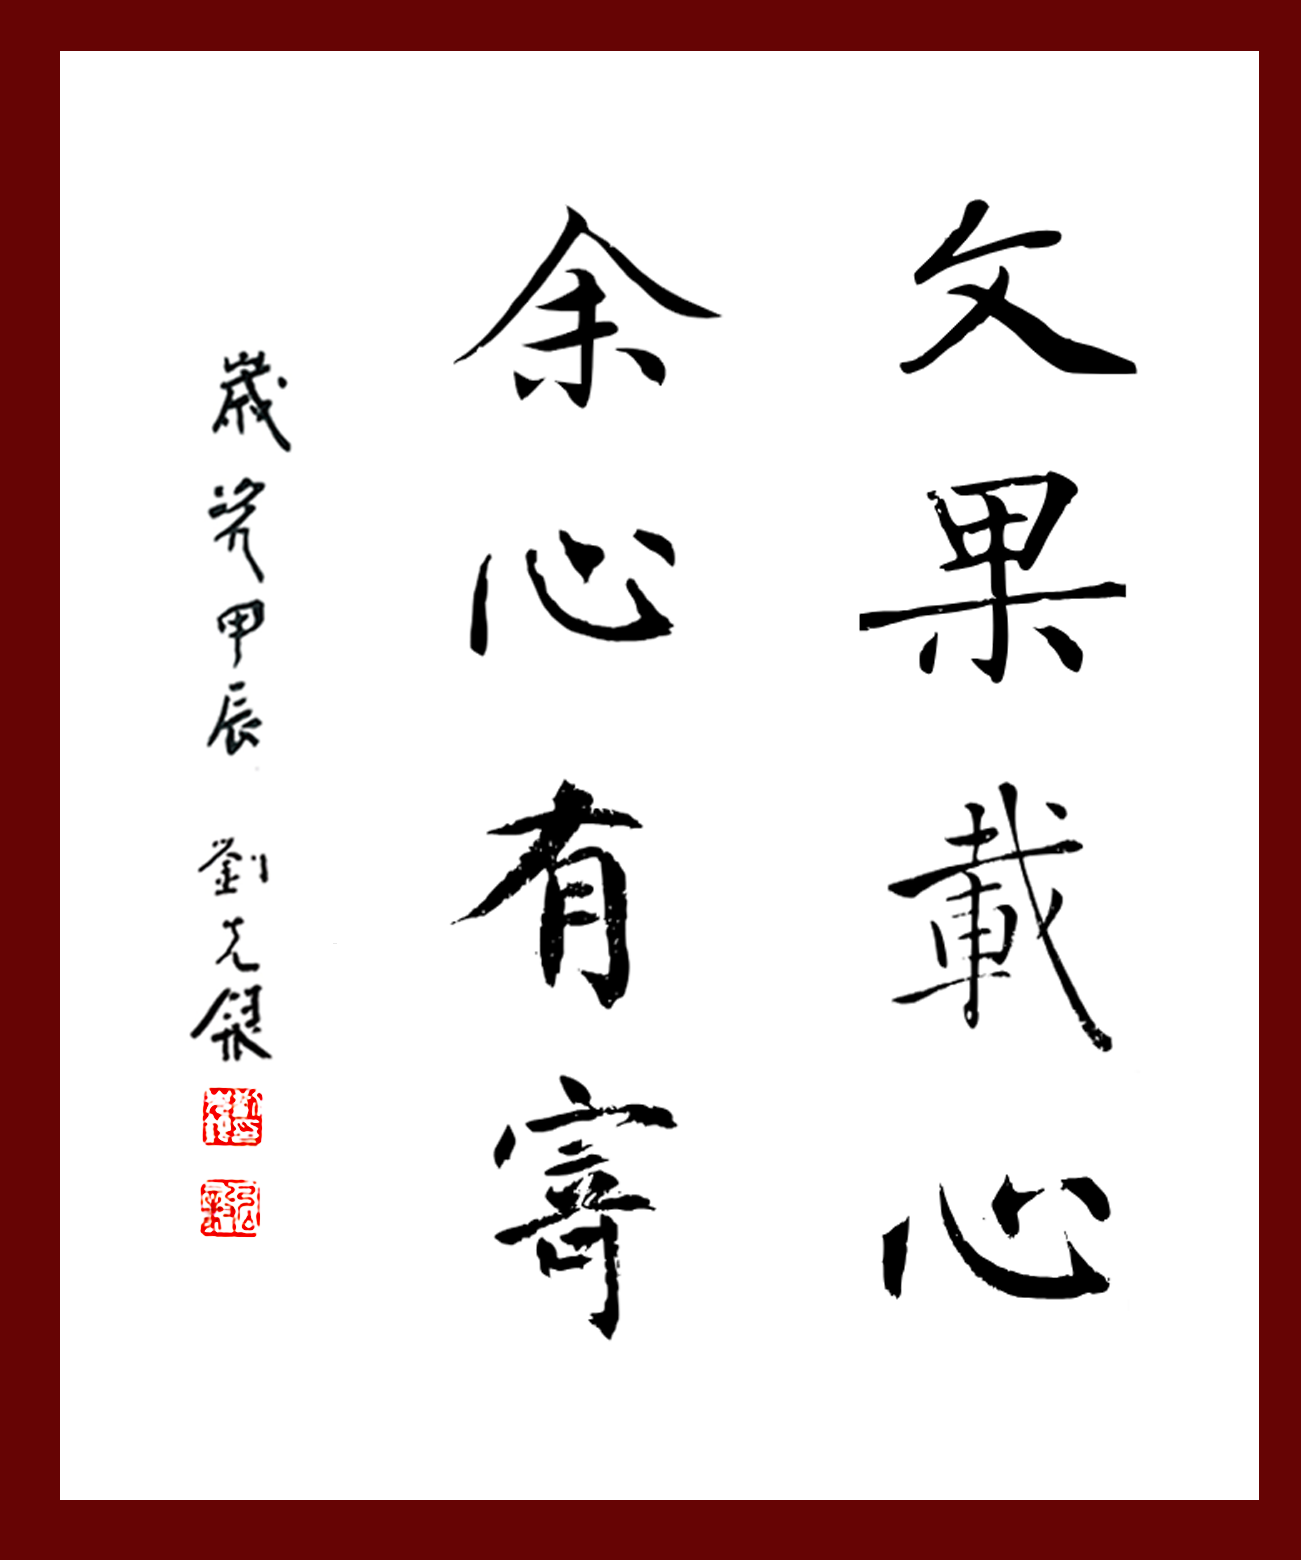 文果載心
余心有寄
歲次甲辰 劉光